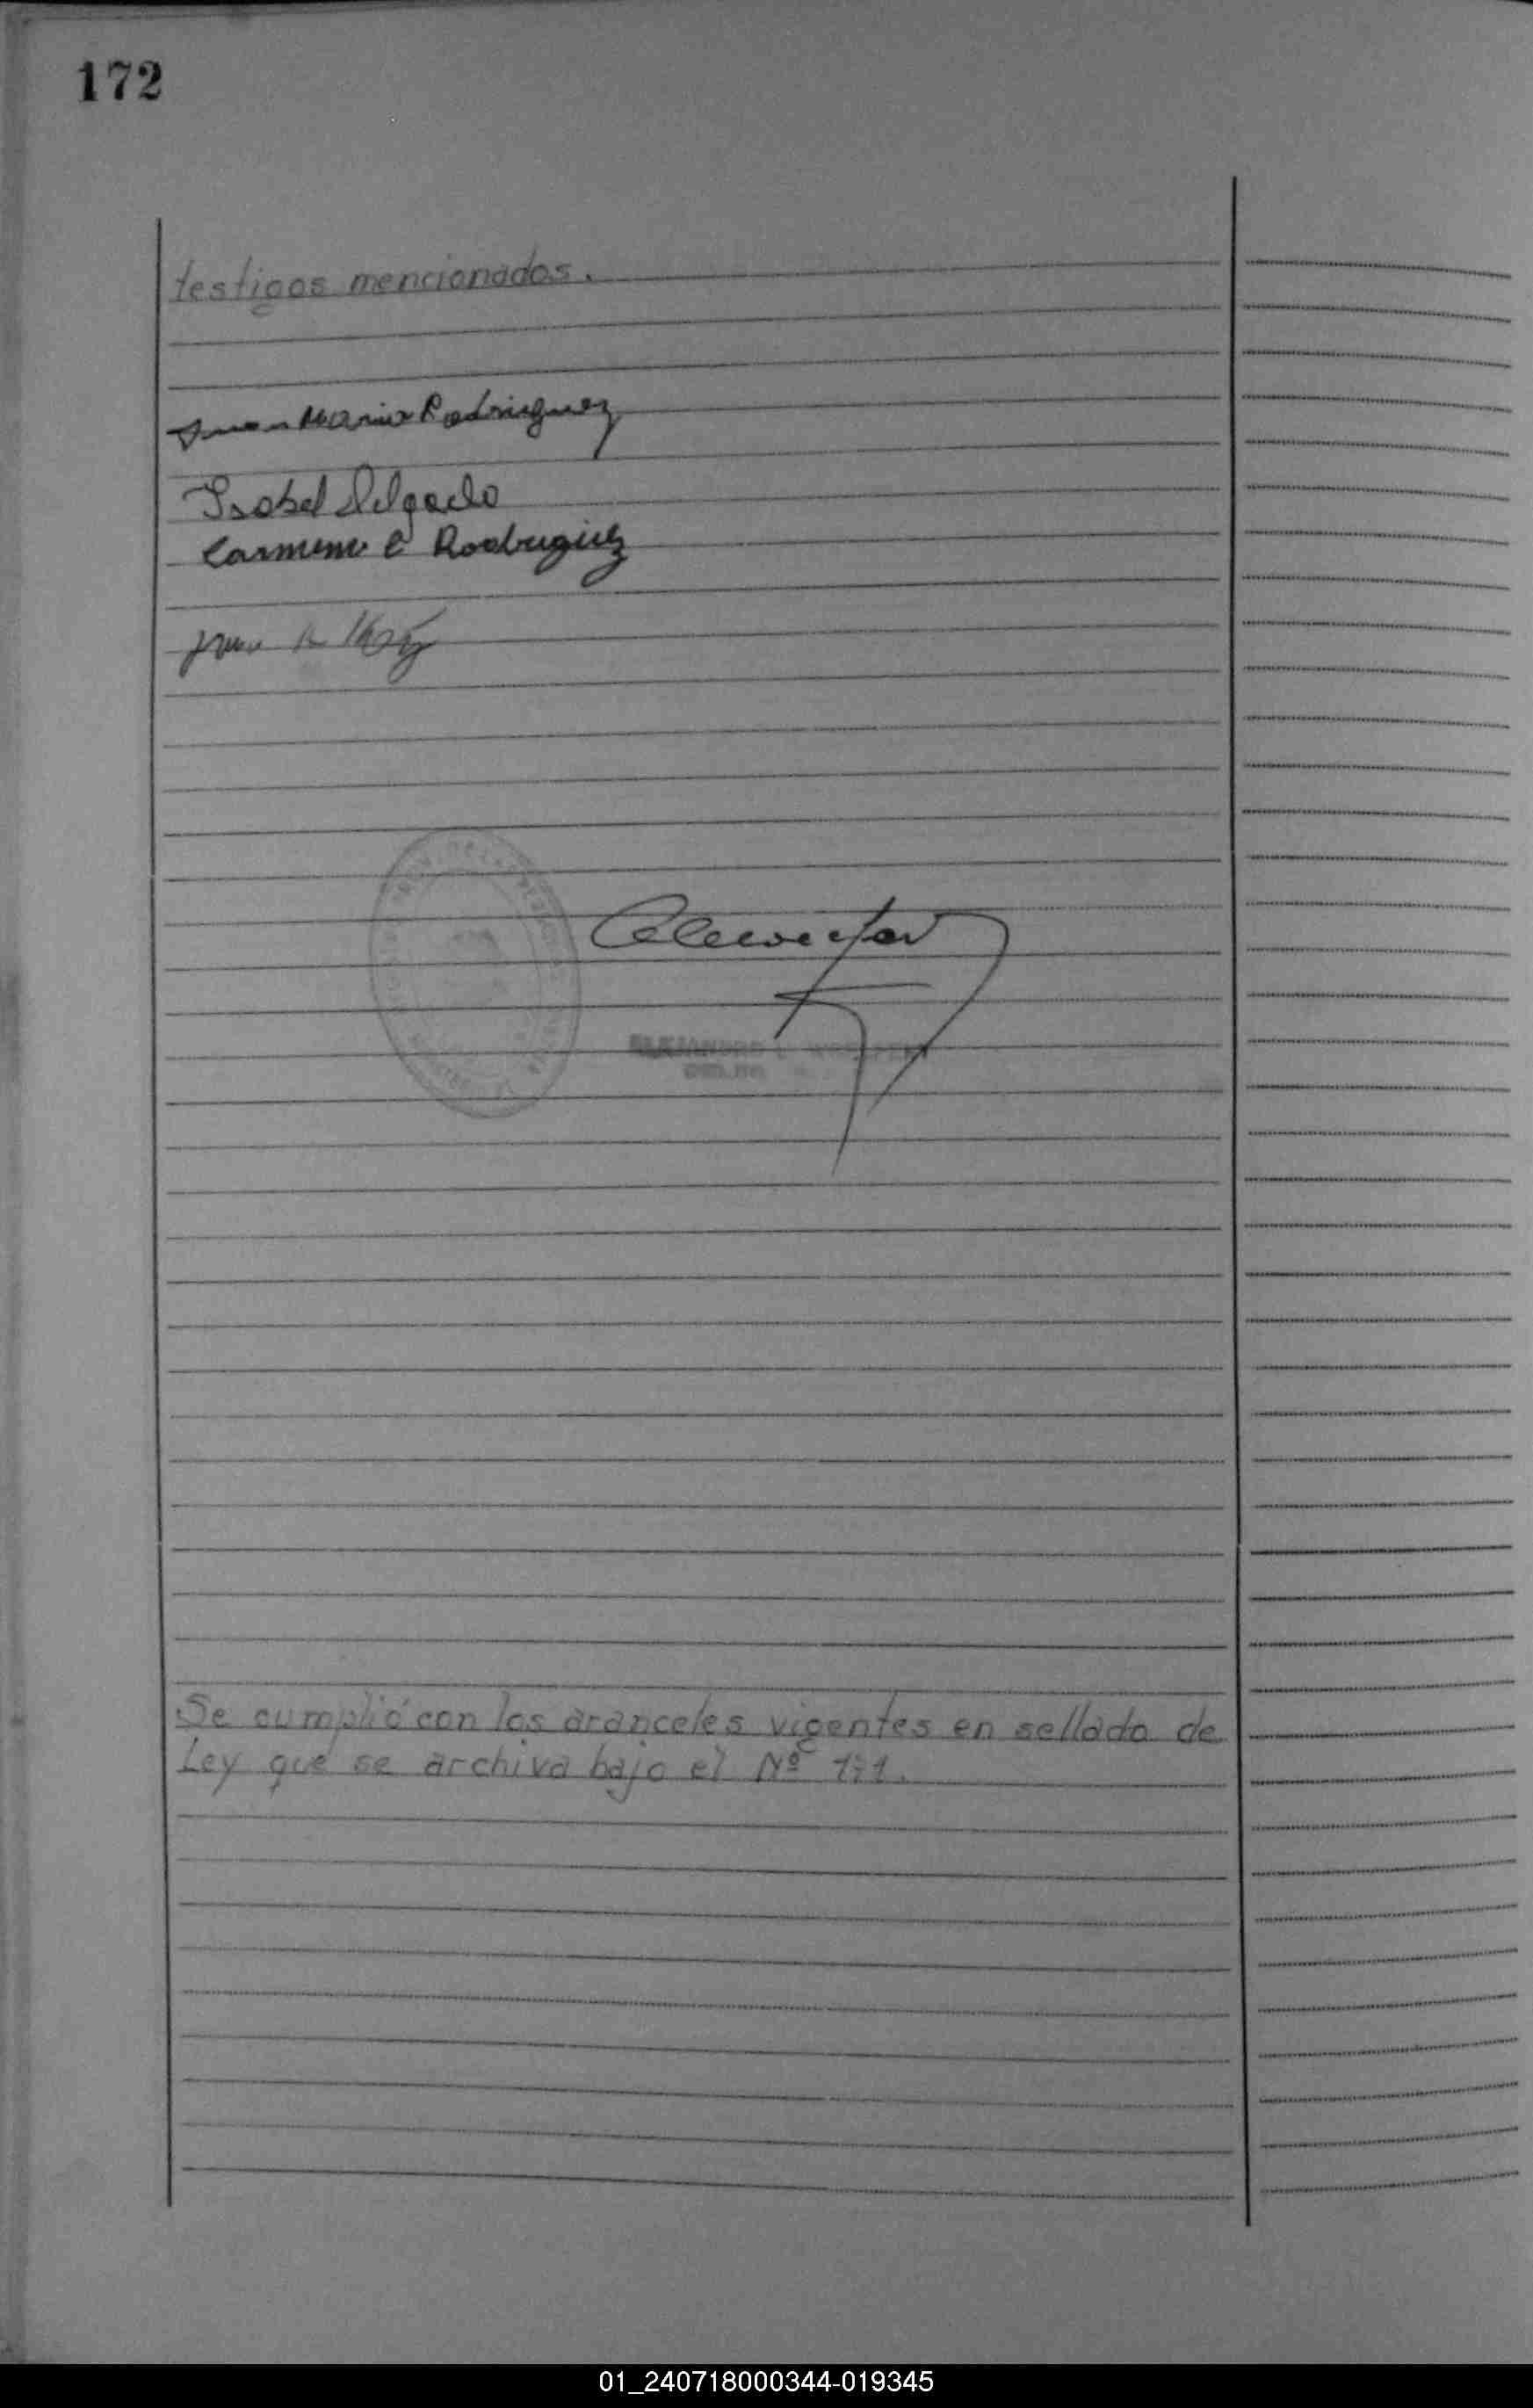 172
testigos mencionados.
Juan Mario Rodriguez
Isabel Delgado
Carmen C Rodriguez
ALEJANDRO
Se cumplió con los aranceles vigentes en sellado de
Ley que se archiva bajo el Nº 171.
01_240718000344-019345